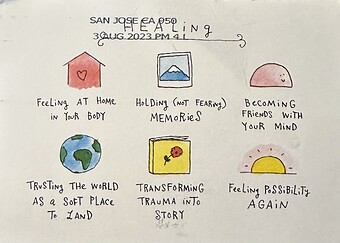 SAN JOSE CA 950
HEALING
30 AUG 2023 PM 4 L
FEELING AT HOME
IN YOUR BODY
HOLDING (NOT FEARING)
MEMORIES
BECOMING
FRIENDS WITH
YOUR MIND
TRUSTING THE WORLD
AS A SOFT PLACE
TO LAND
TRANSFORMING
TRAUMA INTO
STORY
FEELING POSSIBILITY
AGAIN